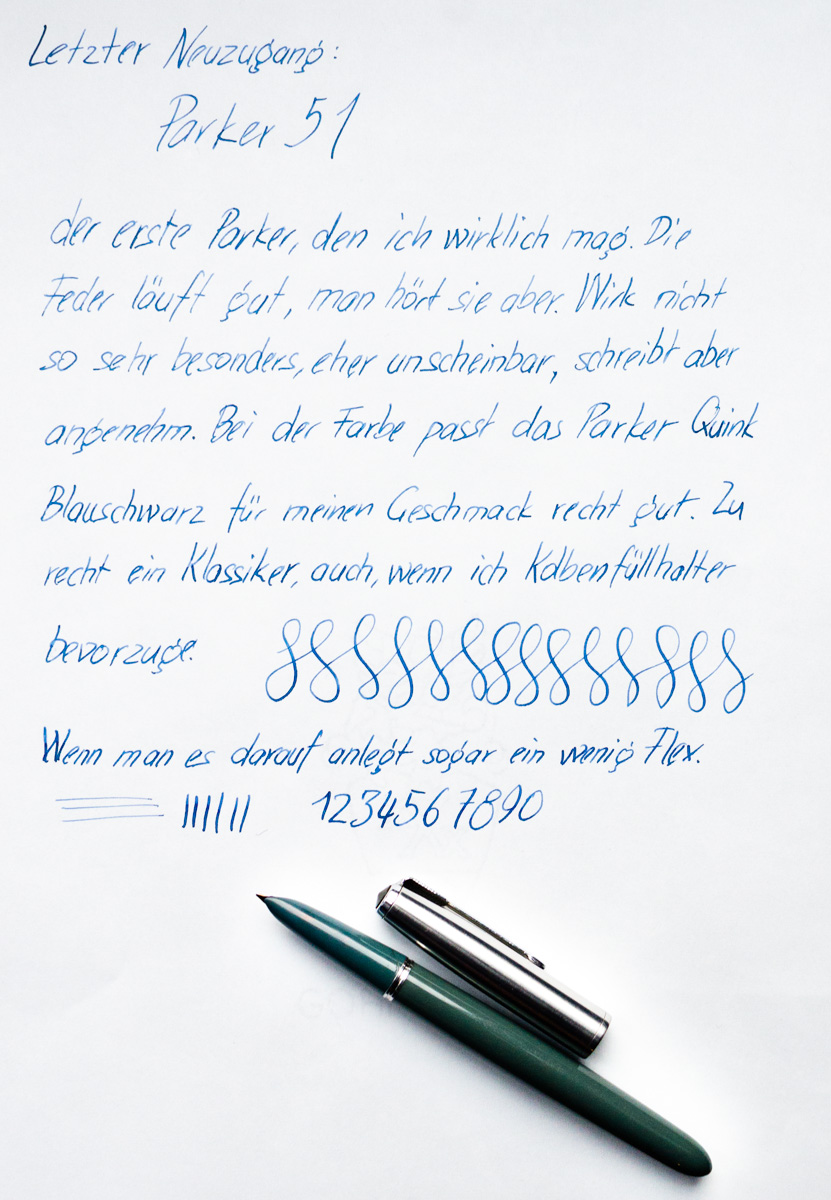 Letzter Neuzugang:
Parker 51
der erste Parker, den ich wirklich mag. Die
Feder läuft gut, man hört sie aber. Wirk nicht
so sehr besonders, eher unscheinbar, schreibt aber
angenehm. Bei der Farbe passt das Parker Quink
Blauschwarz für meinen Geschmack recht gut. Zu
recht ein Klassiker, auch, wenn ich Kolbenfüllhalter
bevorzuge.
Wenn man es darauf anlegt sogar ein wenig Flex.
1234567890